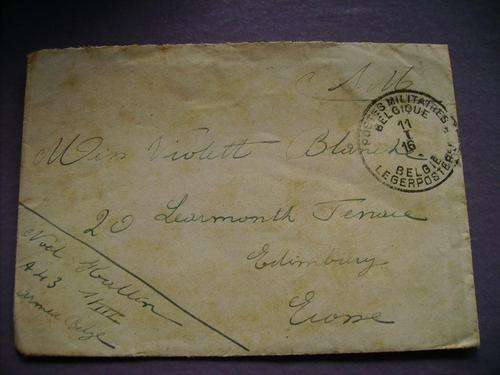 S.M.
POSTES MILITAIRES
BELGIQUE
11
I
16
BELGIË
LEGERPOSTERIJ
Miss Violett Blanch
20 Learmonth Terrace
Edimburg
Ecosse
Noël
A 43 1/III
armée belge